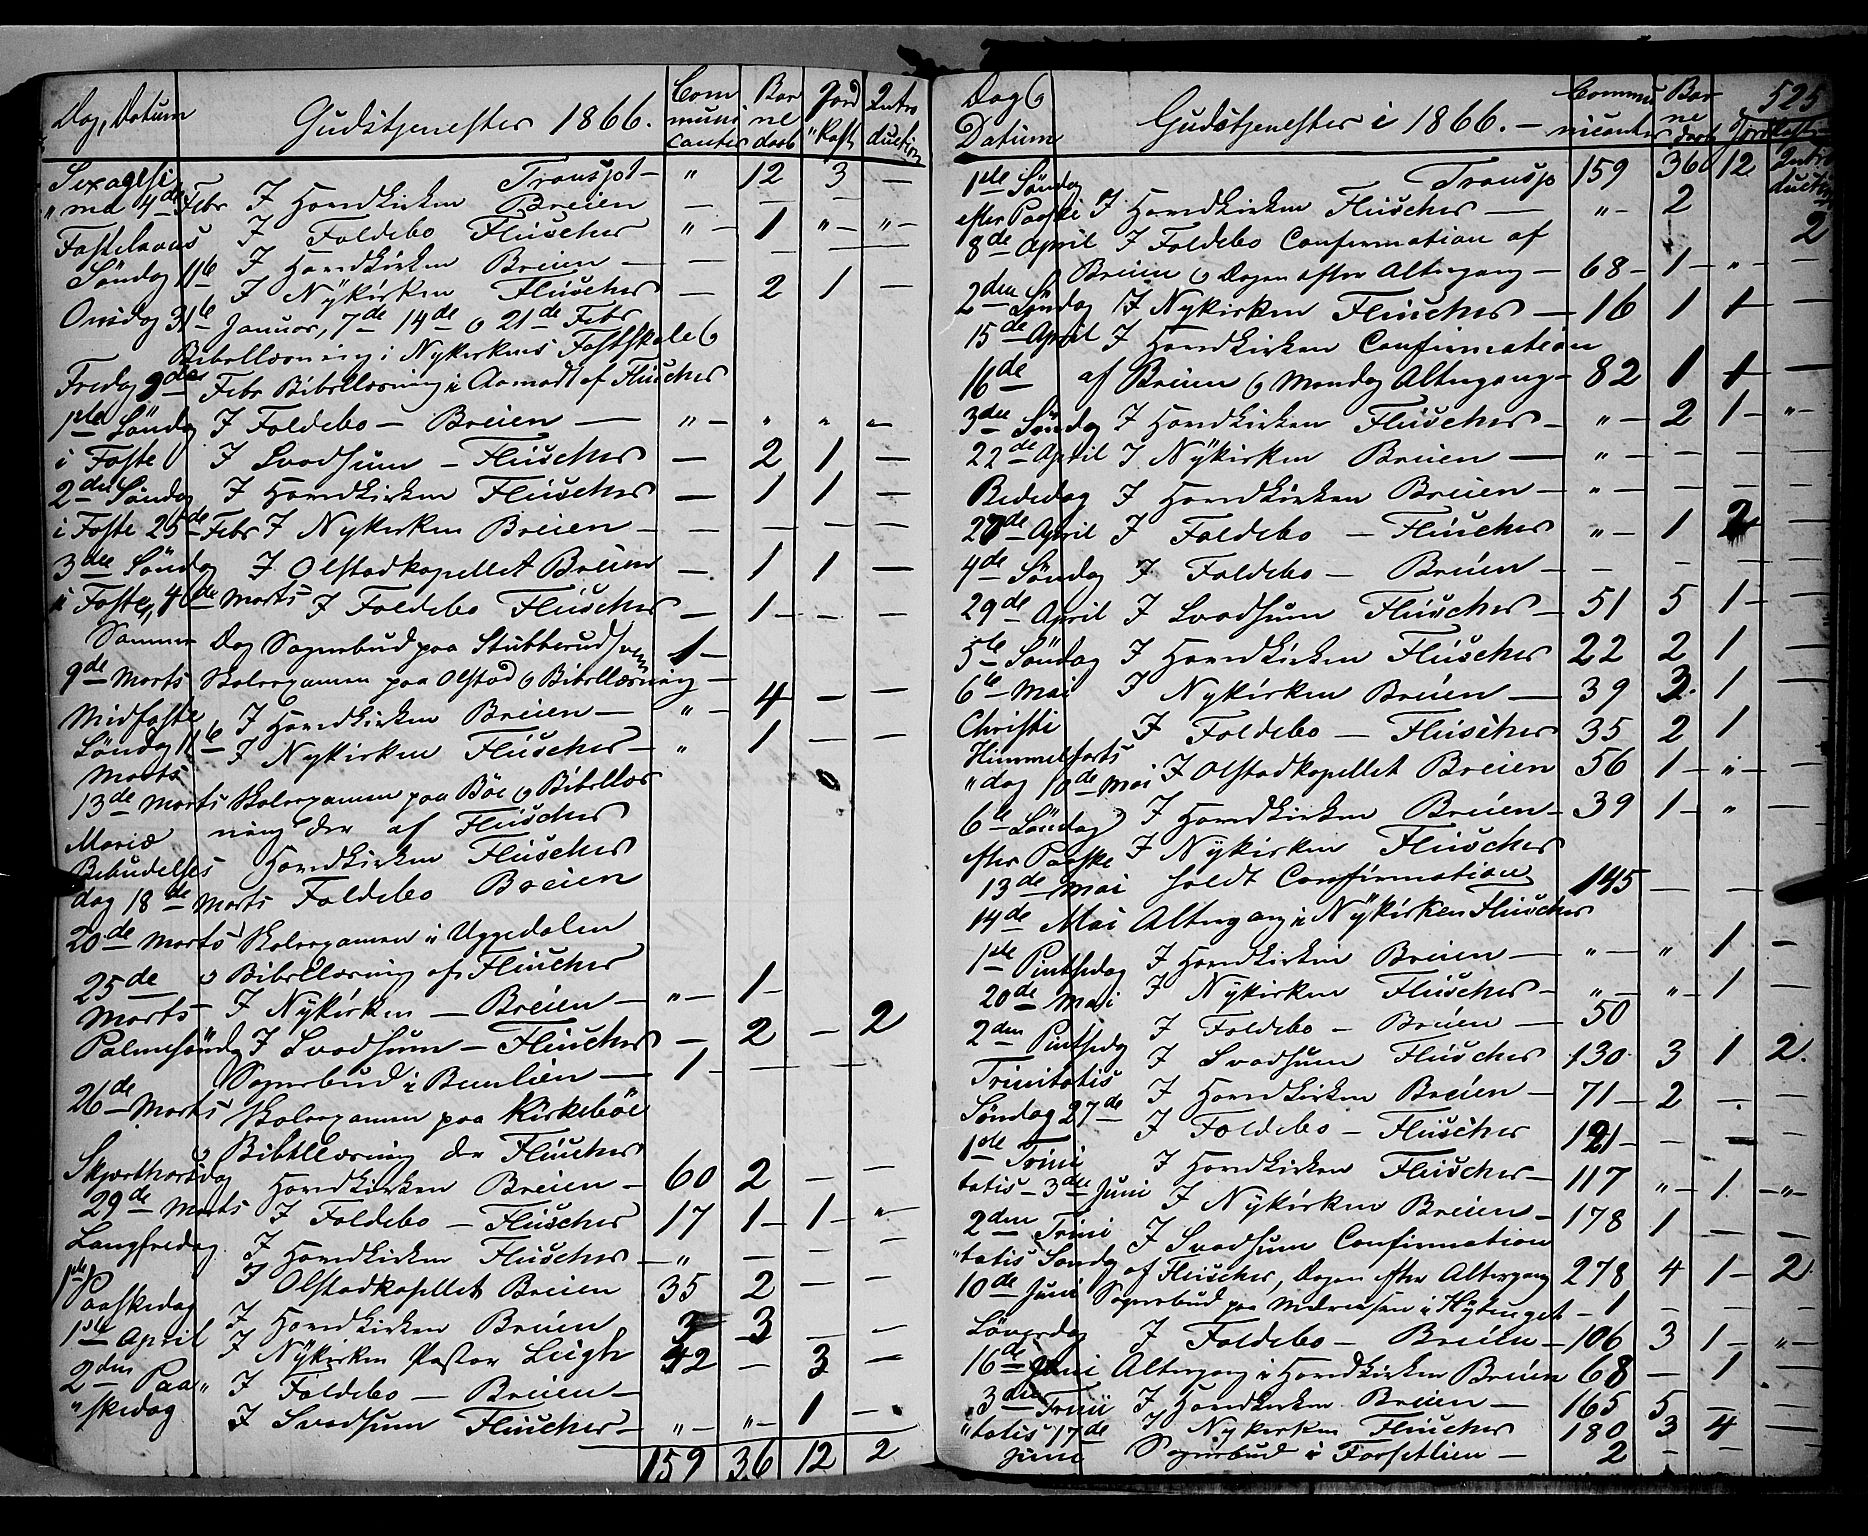 Dag, Datum
Gudstjenester 1866.
Com
muni
canter
Bar
ne
daab
Jord
"kast
Intro
duction
Sexagesi Transpt - " 12 3 -
"ma 4de Febr I Hovedkirken Breien - - - -
Fastelavns I Foldebo Fleischer "- 1 "- "-
Søndag 11te I Hovedkirken Breien - - -
I Nykirken Fleischer - 2 1 -
Onsdag 31te Januar, 7de 14de o 21de Febr
Bibellæsning i Nykirkens Fastskole o
Fredag 9de Febr Bibellæsning i Aamodt af Fleischer
1ste Søndag I Foldebo - Breien - "- " " "-
i Faste I Svadsum - Fleischer - 2 1 -
2den Søndag I Hovedkirken Fleischer - 1 1 -
i Faste 25de Febr I Nykirken Breien - - - - -
3die Søndag I Olstadkapellet Breien - 1 1 -
i Faste, 4de Marts I Foldebo Fleischer - 1 - - -
Samme Dag Sognebud paa Stubberud 1 -
9de Marts Skoleexamen paa Olstad o Bibellæsning -
Midfaste I Hovedkirken Breien - "- 4 - -
Søndag 11te I Nykirken Fleischer - " 1 - -
Marts
13de Marts Skoleexamen paa Böe o Bibellæs
Mariæ ning der af Fleischer
Bebudelses Hovedkirken Fleischer
dag 18de Marts Foldebo Breien
20de Marts Skoleexamen i Uggedalen
o Bibellæsning af Fleischer
25de
Marts - I Nykirken - Breien - "- 1 -
Palmesøndag I Svadsum - Fleischer - 2 - 2
Sognebud i - 1 - - -
26de Marts Skoleexamen paa Kirkeböe
o Bibellæsning der Fleischer
Skjærthorsdag Hovedkirken Breien - 60 2 - -
29de Marts I Foldebo - Fleischer 17 1 - 1 - "-
Langfredag I Hovedkirken Fleischer - "- - - -
I Olstadkapellet Breien 35 2 - -
1ste Paaskedag I Hovedkirken Breien 3 3 - -
1ste April I Nykirken Pastor Lügh 42 - 3 -
2den Paa" I Foldebo - Breien -
"skedag I Svadsum Fleischer - "- "- 1 -
159 36 12 2
Dag o
Datum
Gudstjenester i 1866. -
Commu
nicanter
Bar
ne
daab
Jordkast
525
Intro
duction
2
1ste Søndag Transp 159 36 12
efter Paaske I Hovedkirken Fleischer - "- 2
8de April I Foldebo Confirmation af
Breien o Dagen efter Altergang - 68 - 1 - "- -
2den Søndag I Nykirken Fleischer - 16 1 1 -
15de April I Hovedkirken Confirmation
16de af Breien o Mandag Altergang - 82 1 1 -
3die Søndag I Hovedkirken Fleischer - "- 2 1 - "-
22de April I Nykirken Breien - "- - - -
Bededag I Hovedkirken Breien - "- - - -
27de April I Foldebo - Fleischer "- 1 2 -
4de Søndag I Foldebo - Breien - - - - -
29de April I Svadsum Fleischer - 51 5 1 -
5te Søndag I Hovedkirken Fleischer 22 2 1
6te Mai I Nykirken Breien - 39 3. 1
Christi I Foldebo - Fleischer 35 2 1
Himmelfarts
"dag 10de Mai I Olstadkapellet Breien 56 1 - "- -
6te Søndag I Hovedkirken Breien - 39 1 - " -
efter Paaske I Nykirken Fleischer
13de Mai holdt Confirmation 145 - - -
14de Mai Altergang i Nykirken Fleischer
1ste Pintsedag I Hovedkirken Breien - "- " 1 -
20de Mai I Nykirken Fleischer - "- "- 1 -
2den Pintsedag I Foldebo - Breien - 50
Trinitatis I Svadsum Fleischer 130 3 1 2.
Søndag 27de I Hovedkirken Breien - 71 - 2 - -
I Foldebo - Fleischer 121 - - - -
1ste Trini
tatis - 3die Juni I Hovedkirken Fleischer - 117 "- 1 - "-
I Nykirken Breien - 178 1 - -
2den Trini I Svadsum Confirmation
"tatis Søndag af Fleischer, Dagen efter Altergang 278 4 1 - 2
10de Juni Sognebud paa - 1 - - -
Løverdag I Foldebo - Breien - 106 3 1 - "-
16de Juni Altergang i Hovedkirken Breien 68 - 1
3die Trini I Hovedkirken Breien - 165 5 - -
"tatis 17de I Nykirken Fleischer 180 3 4 -
Juni Sognebud i Forsetlien - 2 - -